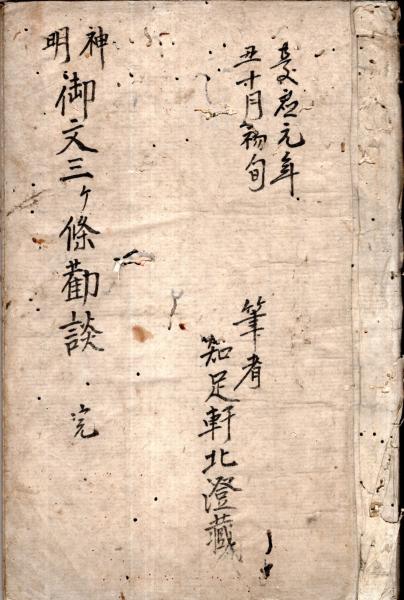 慶應元年
丑十月初旬
筆者
知足軒北澄藏
神
明
御文三ヶ條勸談 完